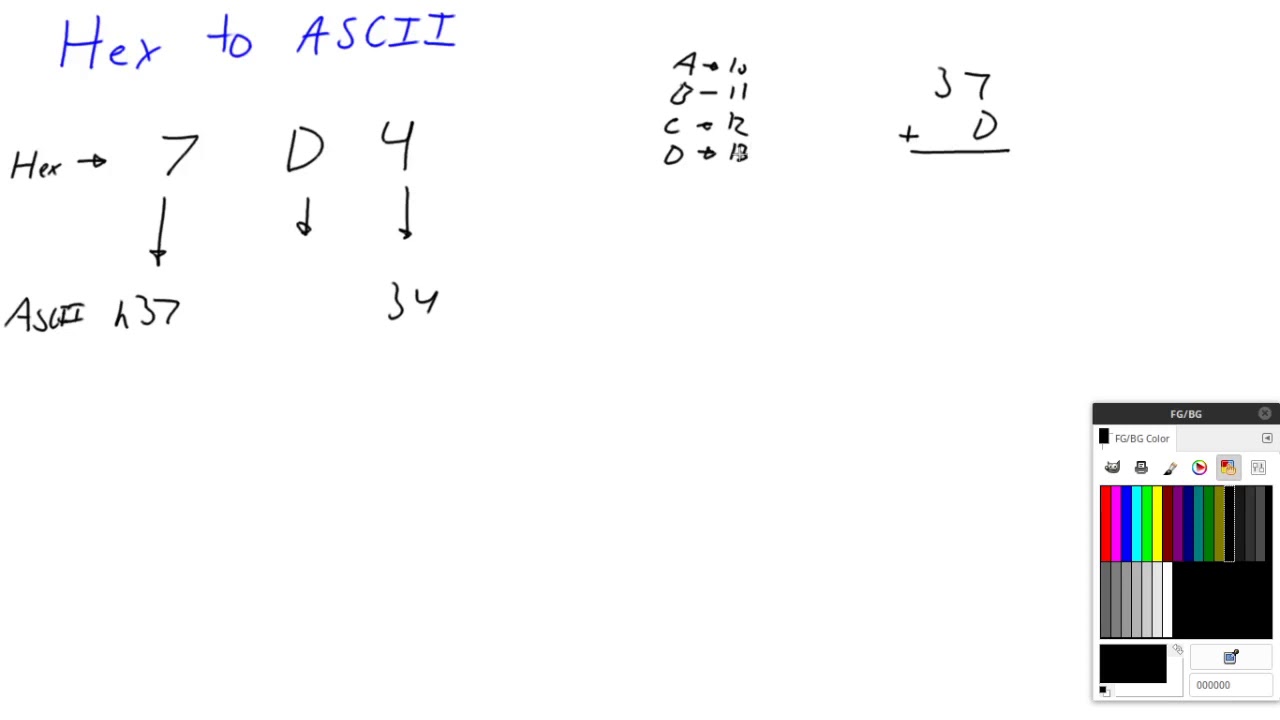 Hex to ASCII
Hex → 7 D 4
ASCII h37 34
A → 10
B - 11
C → 12
D → 13
37
+ D
FG/BG
FG/BG Color
000000